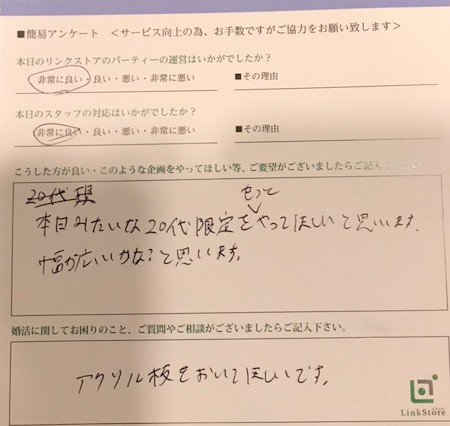 ■簡易アンケート ＜サービス向上の為、お手数ですがご協力をお願い致します＞
本日のリンクストアのパーティーの運営はいかがでしたか？
非常に良い・良い・悪い・非常に悪い ■その理由
本日のスタッフの対応はいかがでしたか？
非常に良い・良い・悪い・非常に悪い ■その理由
こうした方が良い・このような企画をやってほしい等、ご要望がございましたらご記入
20代
もっと
本日みたいな20代限定をやってほしいて思います。
幅が広いかな？て思います。
婚活に関してお困りのこと、ご質問やご相談がございましたらご記入下さい。
アクリル板をおいてほしいです。
LinkStore